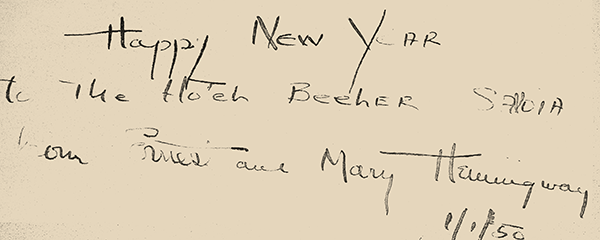 Happy New Year
to The Hotel Becher Savoia
from Ernest and Mary Hemingway
1/1/50